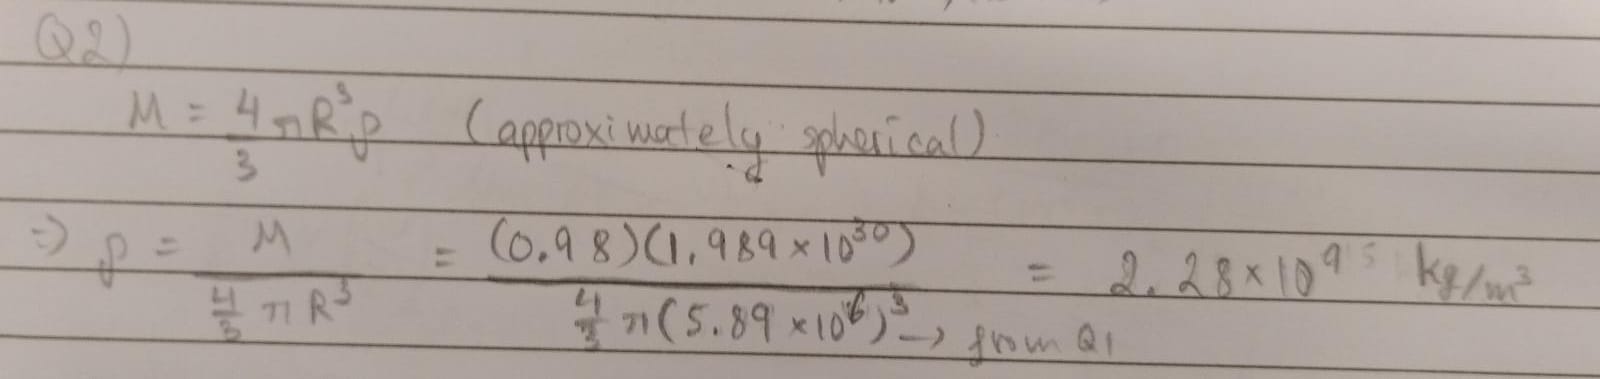 Q2)
M = 4/3 πR³ρ (approximately spherical)
⇒ ρ = M / (4/3 πR³) = (0.98)(1.989 × 10³⁰) / (4/3 π(5.89 × 10⁶)³) = 2.28 × 10⁹ kg/m³
→ from Q1